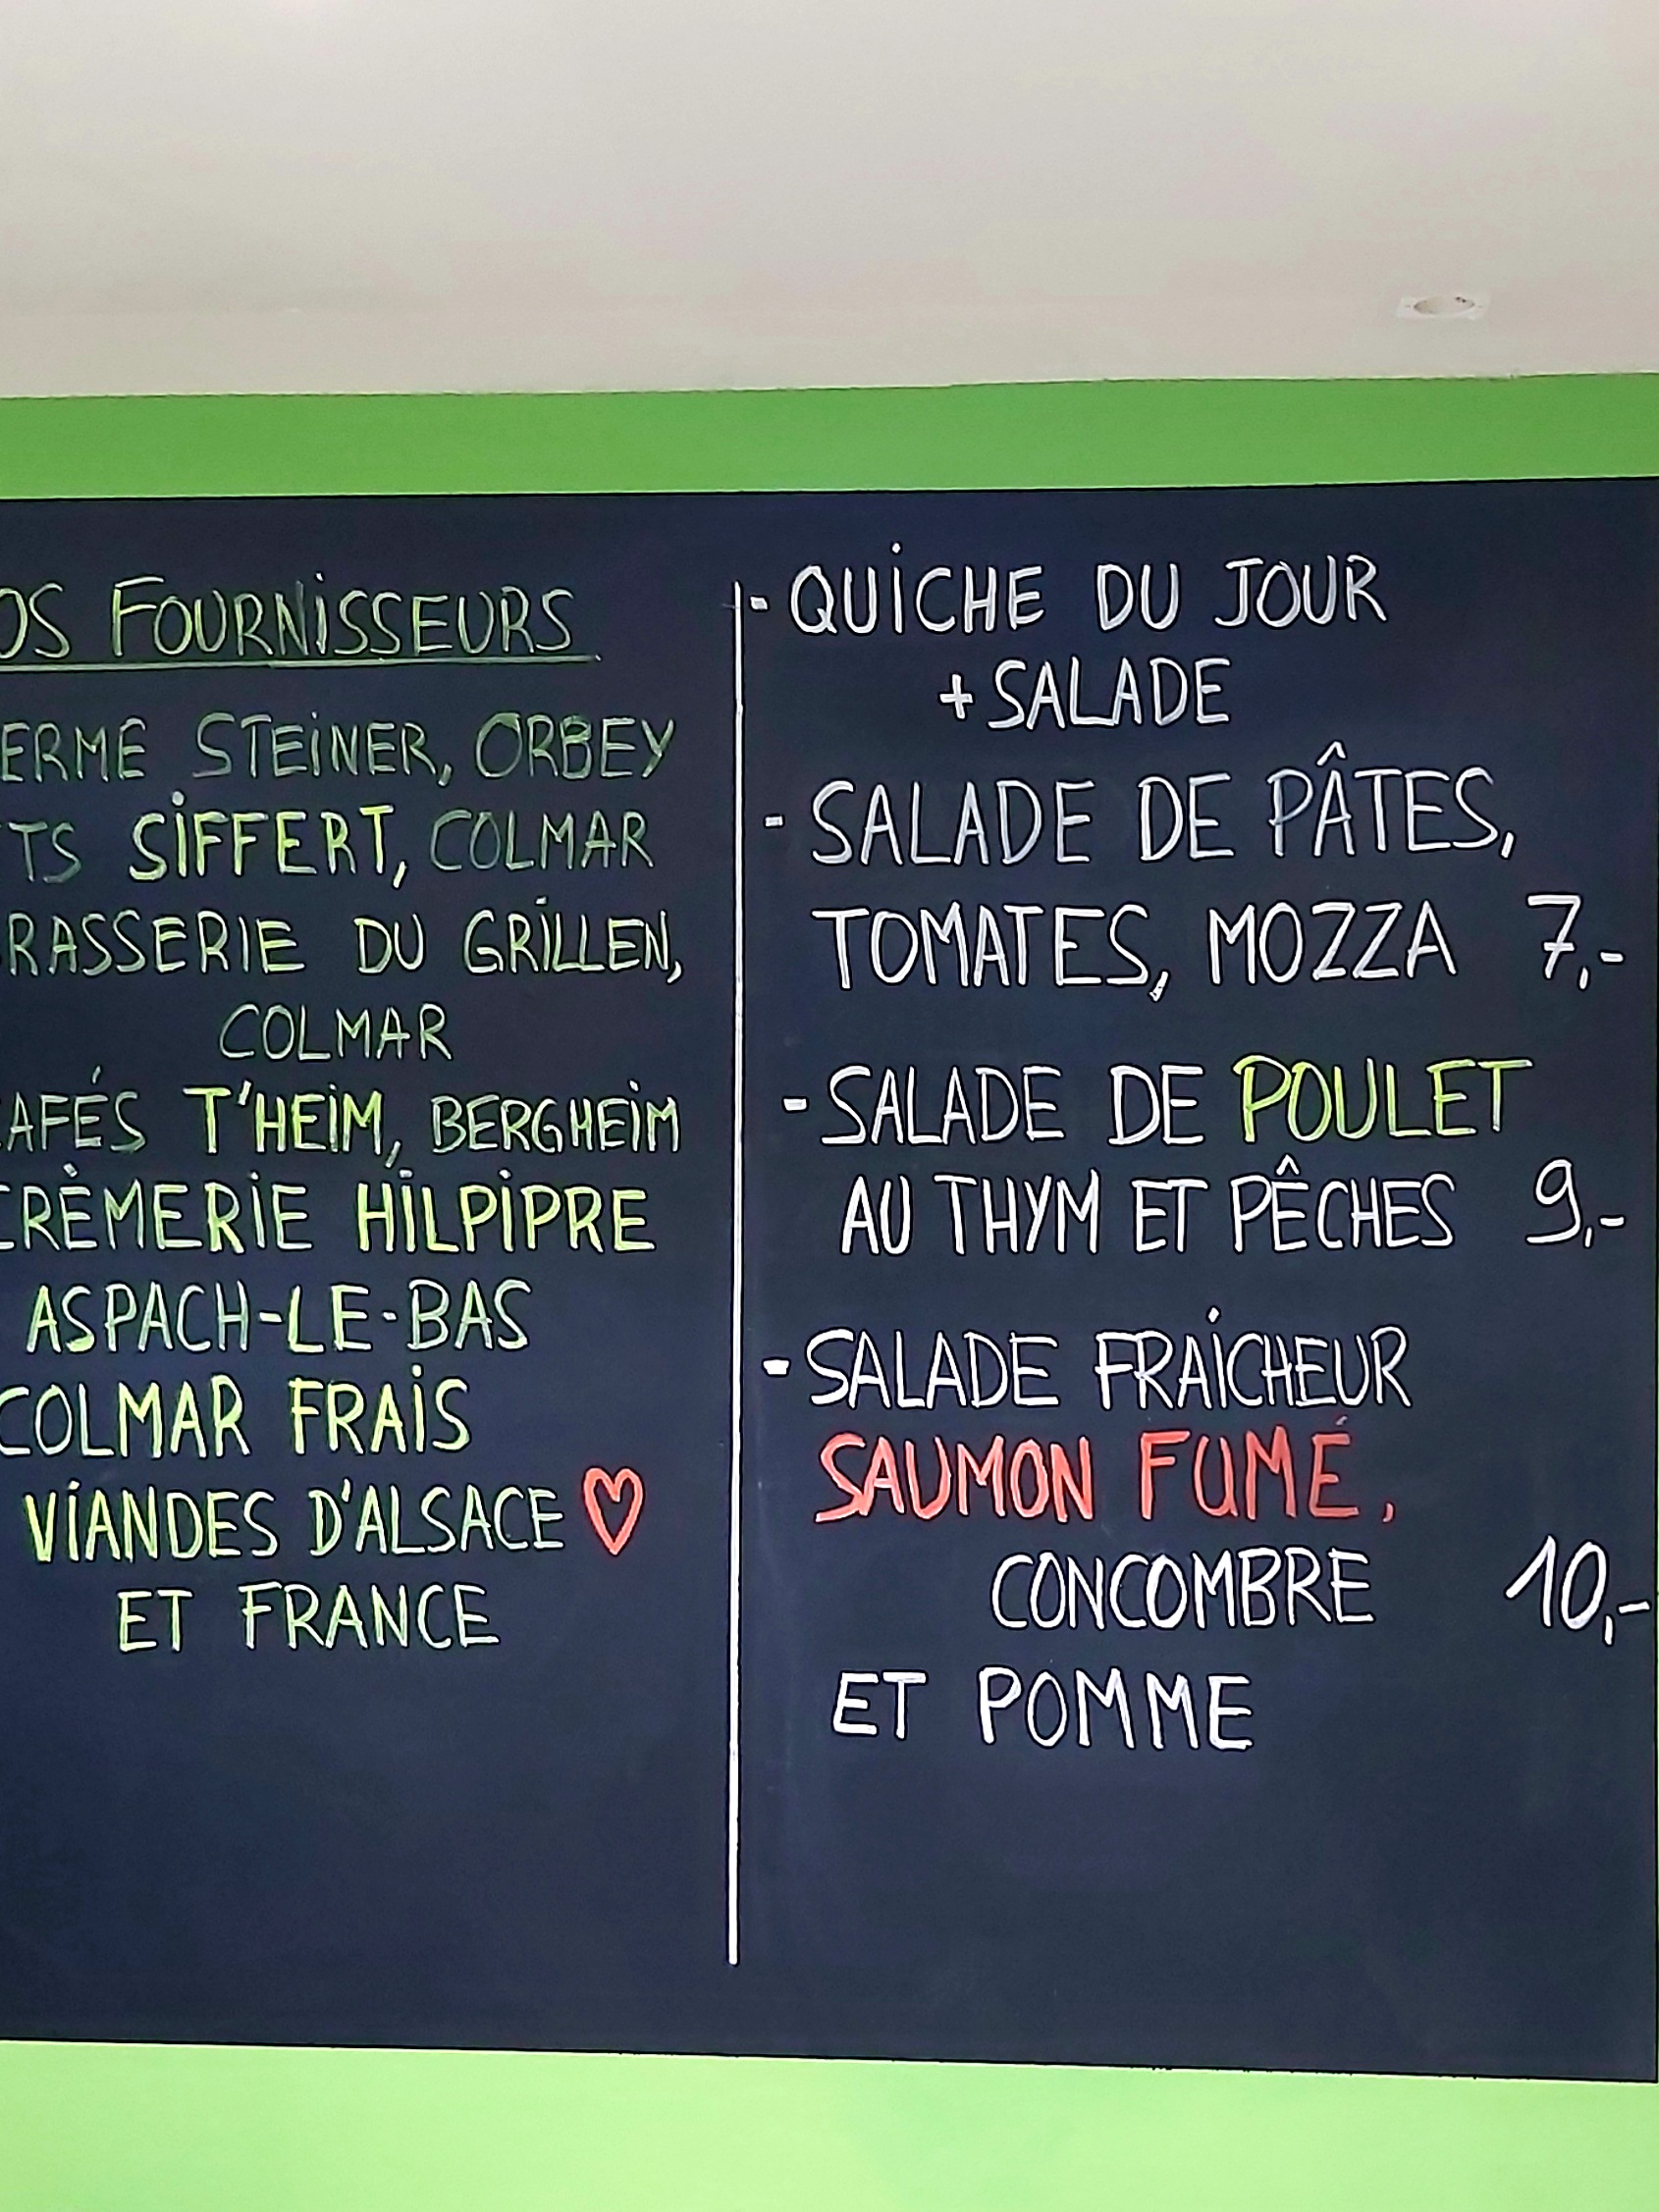 OS FOURNISSEURS
ERME STEINER, ORBEY
TS SIFFERT, COLMAR
RASSERIE DU GRILLEN,
COLMAR
CAFÉS T'HEIM, BERGHEIM
CRÈMERIE HILPIPRE
ASPACH-LE-BAS
COLMAR FRAIS
VIANDES D'ALSACE ♡
ET FRANCE
- QUICHE DU JOUR
+ SALADE
- SALADE DE PÂTES,
TOMATES, MOZZA 7,-
- SALADE DE POULET
AU THYM ET PÊCHES 9,-
- SALADE FRAICHEUR
SAUMON FUMÉ,
CONCOMBRE 10,-
ET POMME